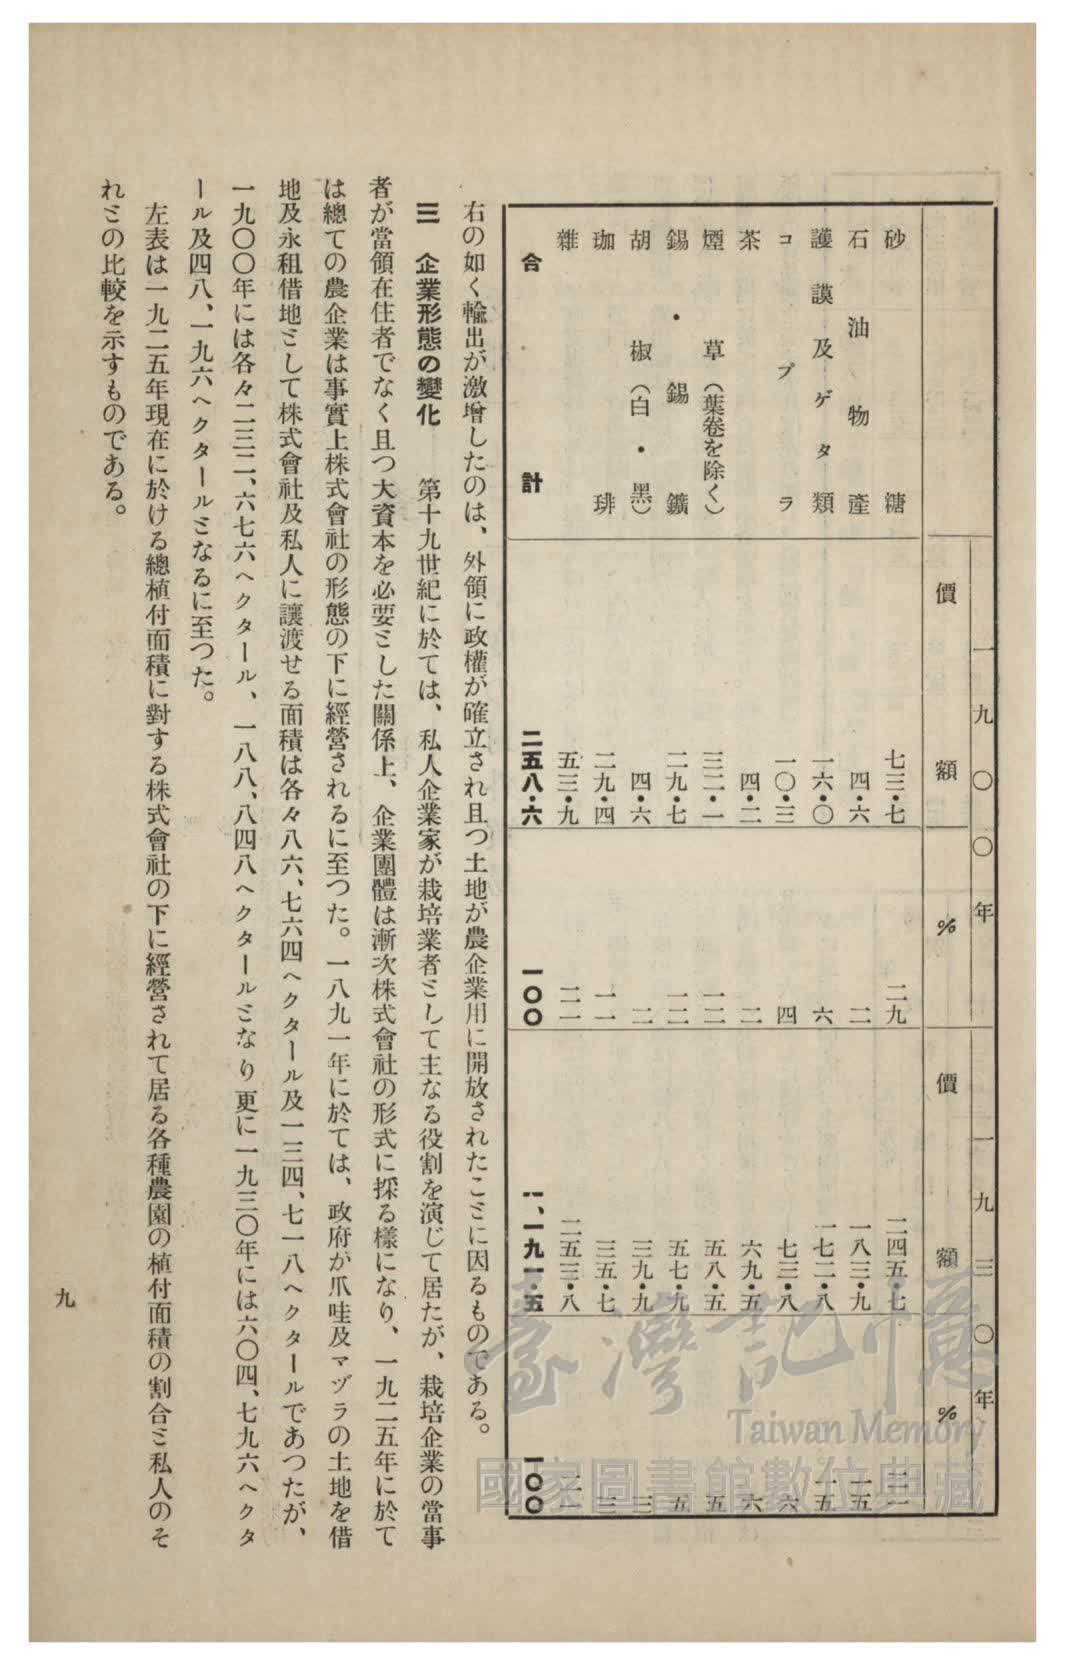 一九〇〇年 一九三〇年
價額 % 價額 %
砂糖 七三・七 二九 二四五・七 二一
石油物産 四・六 二 一八三・九 一五
護謨及ゲタ類 一六・〇 六 一七二・八 一五
コプラ 一〇・三 四 七三・八 六
茶 四・二 二 六九・五 六
煙草(葉卷を除く) 三二・一 一二 五八・五 五
錫・錫鑛 二九・七 一二 五七・九 五
胡椒(白・黑) 四・六 二 三九・九 三
珈琲 二九・四 一一 三五・七 三
雜 五三・九 二一 二五三・八 二一
合計 二五八・六 一〇〇 一、一九一・五 一〇〇
右の如く輸出が激增したのは、外領に政權が確立され且つ土地が農企業用に開放されたことに因るものである。
三 企業形態の變化 第十九世紀に於ては、私人企業家が栽培業者として主なる役割を演じて居たが、栽培企業の當事
者が當領在住者でなく且つ大資本を必要とした關係上、企業團體は漸次株式會社の形式に採る樣になり、一九二五年に於て
は總ての農企業は事實上株式會社の形態の下に經營されるに至つた。一八九一年に於ては、政府が爪哇及マヅラの土地を借
地及永租借地として株式會社及私人に讓渡せる面積は各々八六、七六四ヘクタール及一三四、七一八ヘクタールであつたが、
一九〇〇年には各々二三二、六七六ヘクタール、一八八、八四八ヘクタールとなり更に一九三〇年には六〇四、七九六ヘクタ
ール及四八、一九六ヘクタールとなるに至つた。
左表は一九二五年現在に於ける總植付面積に對する株式會社の下に經營されて居る各種農園の植付面積の割合と私人のそ
れとの比較を示すものである。
九
臺灣記憶
Taiwan Memory
國家圖書館數位典藏